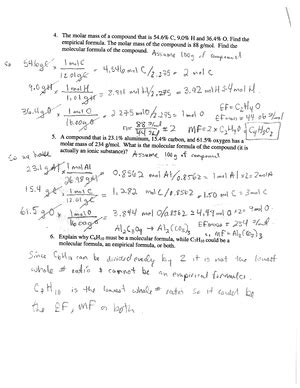 4. The molar mass of a compound that is 54.6% C, 9.0% H and 36.4% O. Find the
empirical formula. The molar mass of the compound is 88 g/mol. Find the
molecular formula of the compound. Assume 100g of compound
So 54.6gC × 1molC / 12.01gC = 4.546 mol C / 2.275 = 2 mol C
9.0gH × 1molH / 1.01gH = 8.911 mol H / 2.275 = 3.92 mol H → 4 mol H.
36.4gO × 1molO / 16.00gO = 2.275 molO / 2.275 = 1 mol O EF = C2H4O
EFmass = 44.06 g/mol
88 / 44.06 = 2 MF = 2 × C2H4O = C4H8O2
5. A compound that is 23.1% aluminum, 15.4% carbon, and 61.5% oxygen has a
molar mass of 234 g/mol. What is the molecular formula of the compound (it is
actually an ionic substance)? Assume 100g of compound
So we have
23.1 gAl × 1molAl / 26.98gAl = 0.8562 mol Al / 0.8562 = 1 mol Al ×2 = 2mol Al
15.4 gC × 1molC / 12.01gC = 1.282 molC / 0.8562 = 1.50 mol C = 3mol C
61.5gO × 1molO / 16.00gO = 3.844 mol O / 0.8562 = 4.49 mol O ×2 = 9mol O.
Al2C3O9 → Al2(CO3)3 EFmass = 234 g/mol
so MF = Al2(CO3)3
6. Explain why C6H10 must be a molecular formula, while C7H10 could be a
molecular formula, an empirical formula, or both.
Since C6H10 can be divided evenly by 2 it is not the lowest
whole # ratio & cannot be an empirical formula.
C7H10 is the lowest whole # ratio so it could be
the EF, MF or both.